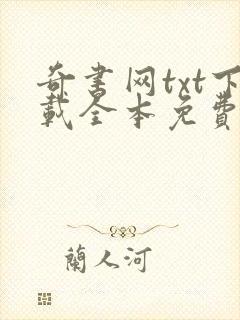 奇书网txt下
载全本免費
蘭人河